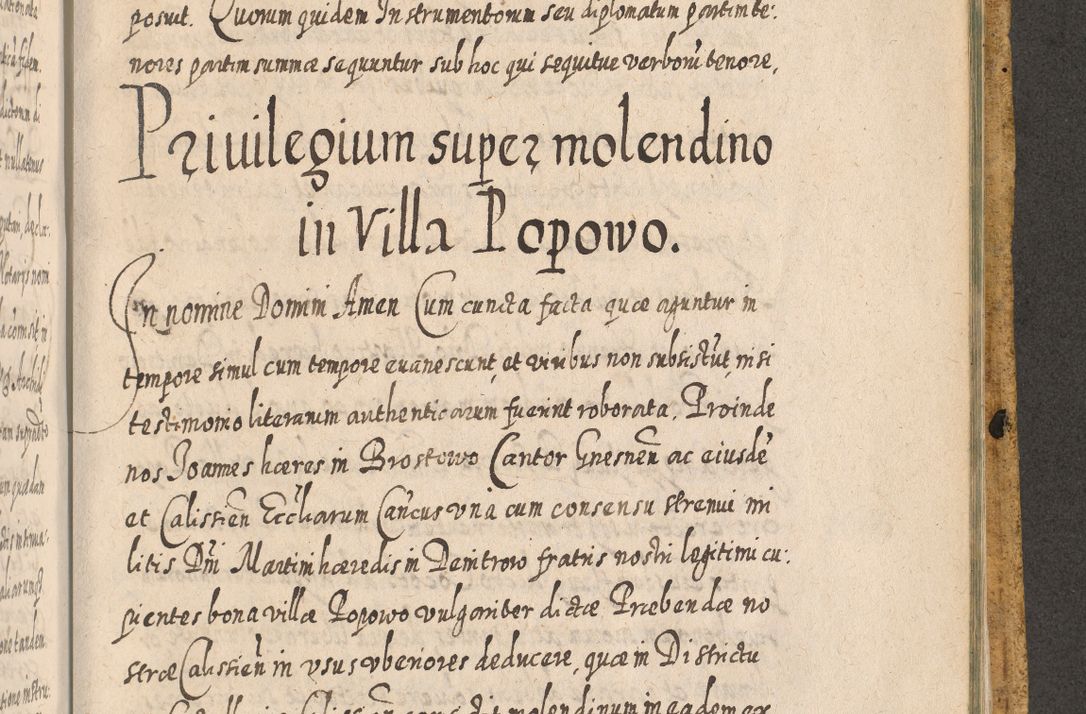 posuit. Quorum quidem Instrumentorum seu diplomatum partim te:
nores partim summæ sequuntur sub hoc qui sequitue verborũ tenore,
Priuilegium super molendino
in Villa Popowo.
In nomine Domini Amen Cum cuncta facta quæ aguntur in
tempore simul cum tempore euanescunt, et viribus non subsistũt, nisi
testimonio literarum authenticarum fuerint roborata, Proinde
nos Joannes hæres in Brostowo Cantor Gnesneñ ac eiusdẽ
et Calissieñ Eccĺiarum Cañcus vnà cum consensu strenui mi
litis Dñi Martini hæredis in Demtrowo fratris nostri legitimi cu:
pientes bona villæ Popowo vulgariter dictæ Præbendæ no
stræ Calissieñ in vsus vberiores deducere, quæ in Districtu
molendinum in eadem ex